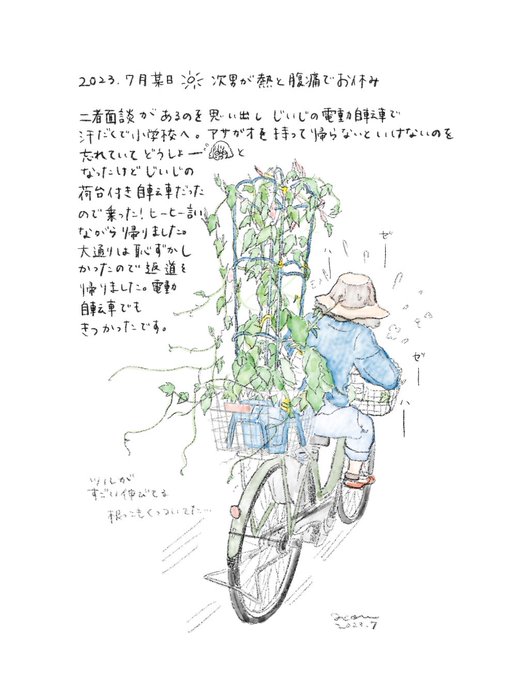 2023.7月某日 次男が熱と腹痛でお休み
二者面談があるのを思い出し じいじの電動自転車で
汗だくで小学校へ。アサガオを持って帰らないといけないのを
忘れていてどうしよー と
なったけどじいじの
荷台付き自転車だった
ので乗った！ヒーヒー言い
ながら帰りました。
大通りは恥ずかし
かったので裏道を
帰りました。電動
自転車でも
きつかったです。
ゼー
ハー
ゼー
ハー
ツルが
すごい伸びてる
根っこもくっついてた…
2023.7